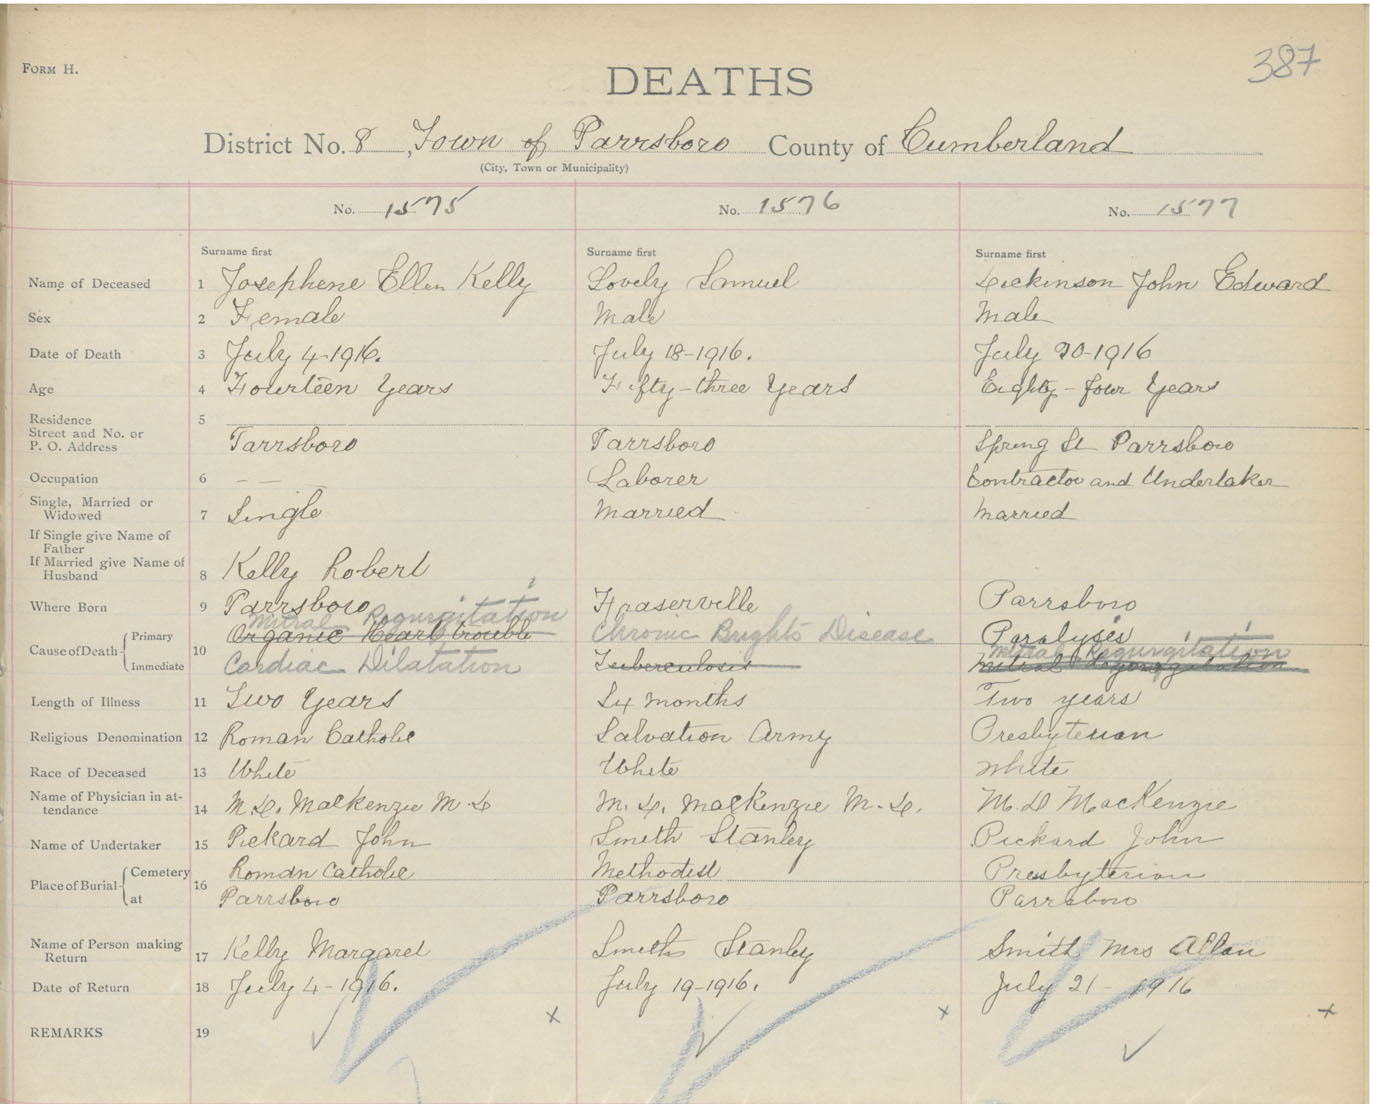 387
FORM H.
DEATHS
District No. 8, Town of Parrsboro County of Cumberland
(City, Town or Municipality)
No. 1575 No. 1576 No. 1577
Surname first Surname first Surname first
Name of Deceased 1 Josephene Ellen Kelly Lovely Samuel Dickinson John Edward
Sex 2 Female Male Male
Date of Death 3 July 4-1916. July 18-1916. July 20-1916
Age 4 Fourteen Years Fifty-three Years Eighty-four Years
Residence 5
Street and No. or
P. O. Address Parrsboro Parrsboro Spring St Parrsboro
Occupation 6 — — Laborer Contractor and Undertaker
Single, Married or
Widowed 7 Single Married Married
If Single give Name of
Father
If Married give Name of
Husband 8 Kelly Robert
Where Born 9 Parrsboro Fraserville Parrsboro
Mitral Regurgitation
Cause of Death Primary 10 Organic Heart trouble Chronic Brights Disease Paralysis
Mitral Regurgitation
Immediate Cardiac Dilatation Tuberculosis Mitral
Length of Illness 11 Two Years Six months Two years
Religious Denomination 12 Roman Catholic Salvation Army Presbyterian
Race of Deceased 13 White White White
Name of Physician in at-
tendance 14 M. D. MacKenzie M. D M. D. MacKenzie M. D. M. D MacKenzie
Name of Undertaker 15 Pickard John Smith Stanley Pickard John
Place of Burial Cemetery 16 Roman Catholic Methodist Presbyterian
at Parrsboro Parrsboro Parrsboro
Name of Person making
Return 17 Kelly Margaret Smith Stanly Smith Mrs Allan
Date of Return 18 July 4-1916. July 19-1916. July 21-1916
REMARKS 19